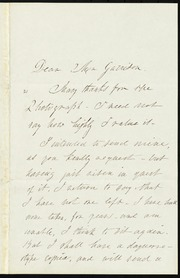 Dear Mrs Garrison
Many thanks from the
Photograph. I need not
say how highly I value it.
I intended to send mine,
as you kindly request - but
having just risen in quest
of it, I notice to say that
I have not one left. I have had
one taken, for years, and am
unable, I think to sit again.
But I shall have a daguerreo-
type copied, and will send a